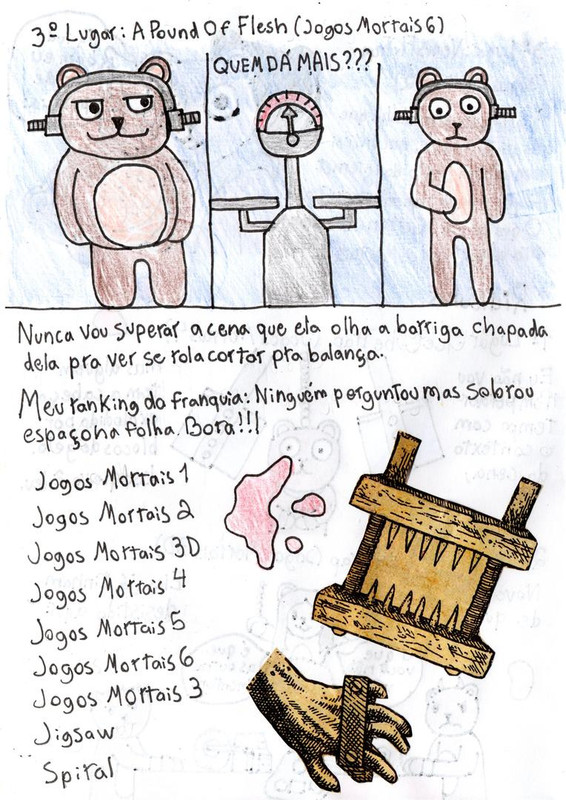 3º Lugar: A Pound Of Flesh (Jogos Mortais 6)
QUEM DÁ MAIS???
Nunca vou superar a cena que ela olha a barriga chapada
dela pra ver se rola cortar pra balança.
Meu ranking da franquia: Ninguém perguntou mas sobrou
espaço na folha. Bora!!!
Jogos Mortais 1
Jogos Mortais 2
Jogos Mortais 3D
Jogos Mortais 4
Jogos Mortais 5
Jogos Mortais 6
Jogos Mortais 3
Jigsaw
Spiral